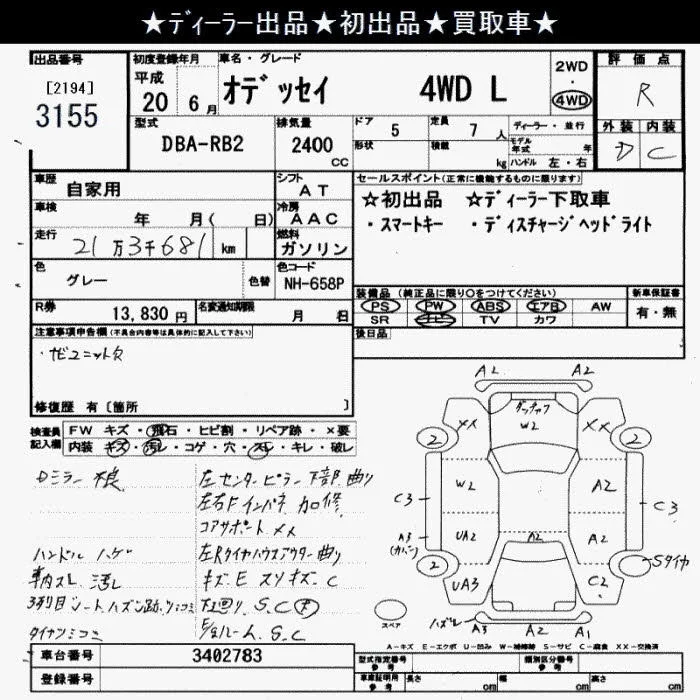 ★ディーラー出品★初出品★買取車★
出品番号 初度登録年月 車名・グレード 評価点
[2194] 平成 2WD
3155 20 6月 オデッセイ 4WD L ・ 4WD R
型式 排気量 ドア 定員 ディーラー・並行 外装 内装
DBA-RB2 2400 CC 5 7人 モデル年式 年 D C
形状 積載 kg ハンドル 左・右
車歴 自家用 シフト AT セールスポイント(正常に機能するものに限ります)
車検 年 月( 日) 冷房 AAC ☆初出品 ☆ディーラー下取車
走行 21万3千681 km 燃料 ガソリン ・スマートキー ・ディスチャージヘッドライト
色 グレー 色替 色コード NH-658P
装備品 (純正品に限り○をつけてください) 新車保証書
R券 13,830円 名変通知期限 月 日 PS PW ABS エアB AW 有・無
SR ナビ TV カワ
注意事項申告欄(不具合内容等は具体的に記入して下さい) 後日品
・ナビユニット欠
修復歴 有[箇所 ]
検査員記入欄 FW キズ・飛石・ヒビ割・リペア跡・×要
内装 キズ・汚れ・コゲ・穴・スレ・キレ・破レ
Dミラー 不良 左センターピラー下部曲り
左右Fインパネ 加修
コアサポート XX
ハンドル ハゲ 左Rタイヤハウスアウター曲り
車内スレ 汚レ キズ.E スリキズ.C
3列目シート ハズシ跡 下廻り S.C
S.C
A2 A2
ダッチャク
XX W2 XX
2 2
W2 A2
C3 C3
A3 (カバー) UA2 A2 A2
2 Sタイヤ
UA3 C2
スペア ハズレ A3 A2 A1
A-キズ E-エクボ U-凹み W-補修跡 S-サビ C-腐食 XX-交換済
車台番号 3402783 型式指定番号 参考 類別区分番号 参考
登録番号 車庫証明用 参考 長さ cm 幅 cm 高さ cm